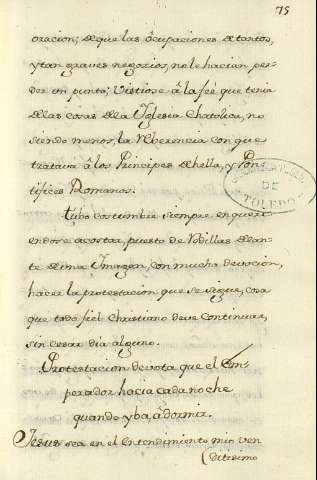 75
oracion; de que las ocupaciones de tantos,
y tan graves negocios, no le hacian per-
der un punto; vistiose a la feé que tenia
de las cosas de la Yglesia Chatolica, no
siendo menos, la Reberencia con que
tratava â los Principes de hella, y Pon-
tifices Romanos.
DE
TOLEDO
Tubo costumbre siempre, en querí-
endose acostar, puesto de Rodillas delan-
te de una Ymagen, con mucha devocion,
hacer la protestacion que se sigue, cosa
que todo fiel Christiano deve continuar,
sin cesar dia alguno.
Protestacion devota que el Em-
perador hacia cada noche
quando yba, â dormir.
Jesus sea en el Entendimiento mio ven
ditisimo